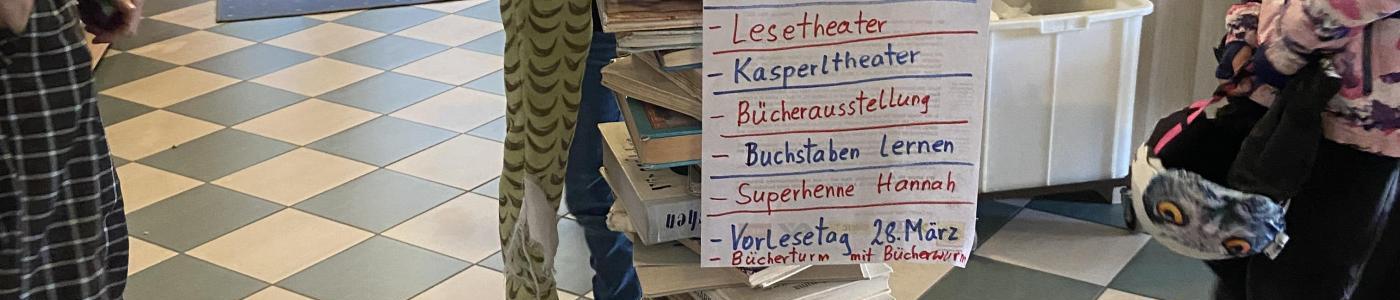 - Lesetheater
- Kasperltheater
- Bücherausstellung
- Buchstaben lernen
- Superhenne Hannah
- Vorlesetag 28. März
- Bücherturm mit Bücherwurm